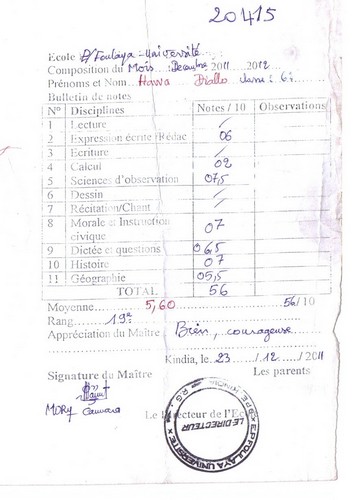 20415
Ecole P/Foulaya-Université
Composition du Mois Decembre 2011 2012
Prénoms et Nom Hawa Diallo classe : 6è
Bulletin de notes
N° Disciplines Notes / 10 Observations
1 Lecture /
2 Expression écrite /Rédac 06
3 Ecriture /
4 Calcul 02
5 Sciences d'observation 07,5
6 Dessin /
7 Récitation/Chant /
8 Morale et Instruction civique 07
9 Dictée et questions 06,5
10 Histoire 07
11 Géographie 05,5
TOTAL 56
Moyenne 5,60 56/10
Rang 19è
Appréciation du Maître Bien, courageuse
Kindia, le 23 / 12 / 2011
Signature du Maître Les parents
MORY Camara Le Directeur de l'Ecole
LE DIRECTEUR
E.P FOULAYA UNIVERSITE